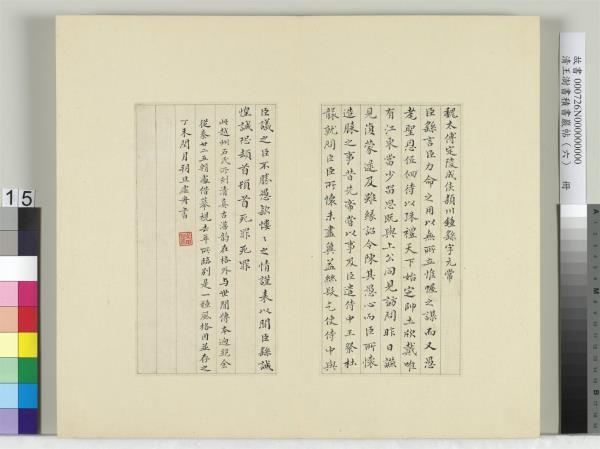 魏太傅定陵成侯潁川鍾繇字元常
臣繇言臣力命之用以無所立惟幄之謀而又愚
耄聖恩低佪待以殊禮天下始定帥土欣戴唯
有江東當少留思既與上公同見訪問昨日疏
見復蒙逮及雖緣詔令陳其愚心而臣所懷
造膝之事昔先帝嘗以事及臣遣侍中王粲杜
襲就問臣臣所懷未盡冀益絲髮乞使侍中與
臣議之臣不勝愚欵慺〻之情謹表以聞臣繇誠
惶誠恐頓首頓首死罪死罪
此越州石氏所刻清真古澹韵在格外与世間傳本迥絶余
從秦廿二五輯處借摹視去年所臨別是一種風格因並存之
丁未閏月朔旦虛舟書
故書 000726N000000000
清王澍書積書巖帖（六） 冊
15